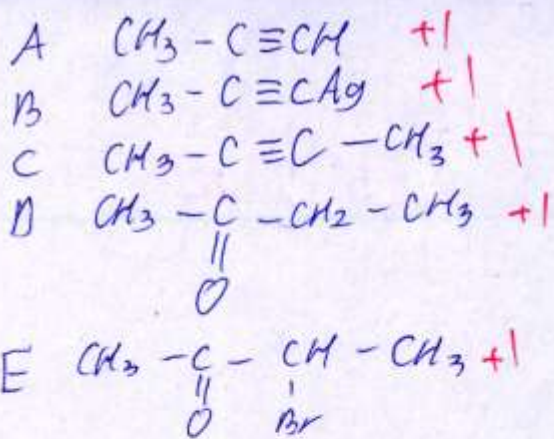 A CH₃ - C ≡ CH +1
B CH₃ - C ≡ CAg +1
C CH₃ - C ≡ C - CH₃ +1
D CH₃ - C - CH₂ - CH₃ +1
||
O
E CH₃ - C - CH - CH₃ +1
|| |
O Br